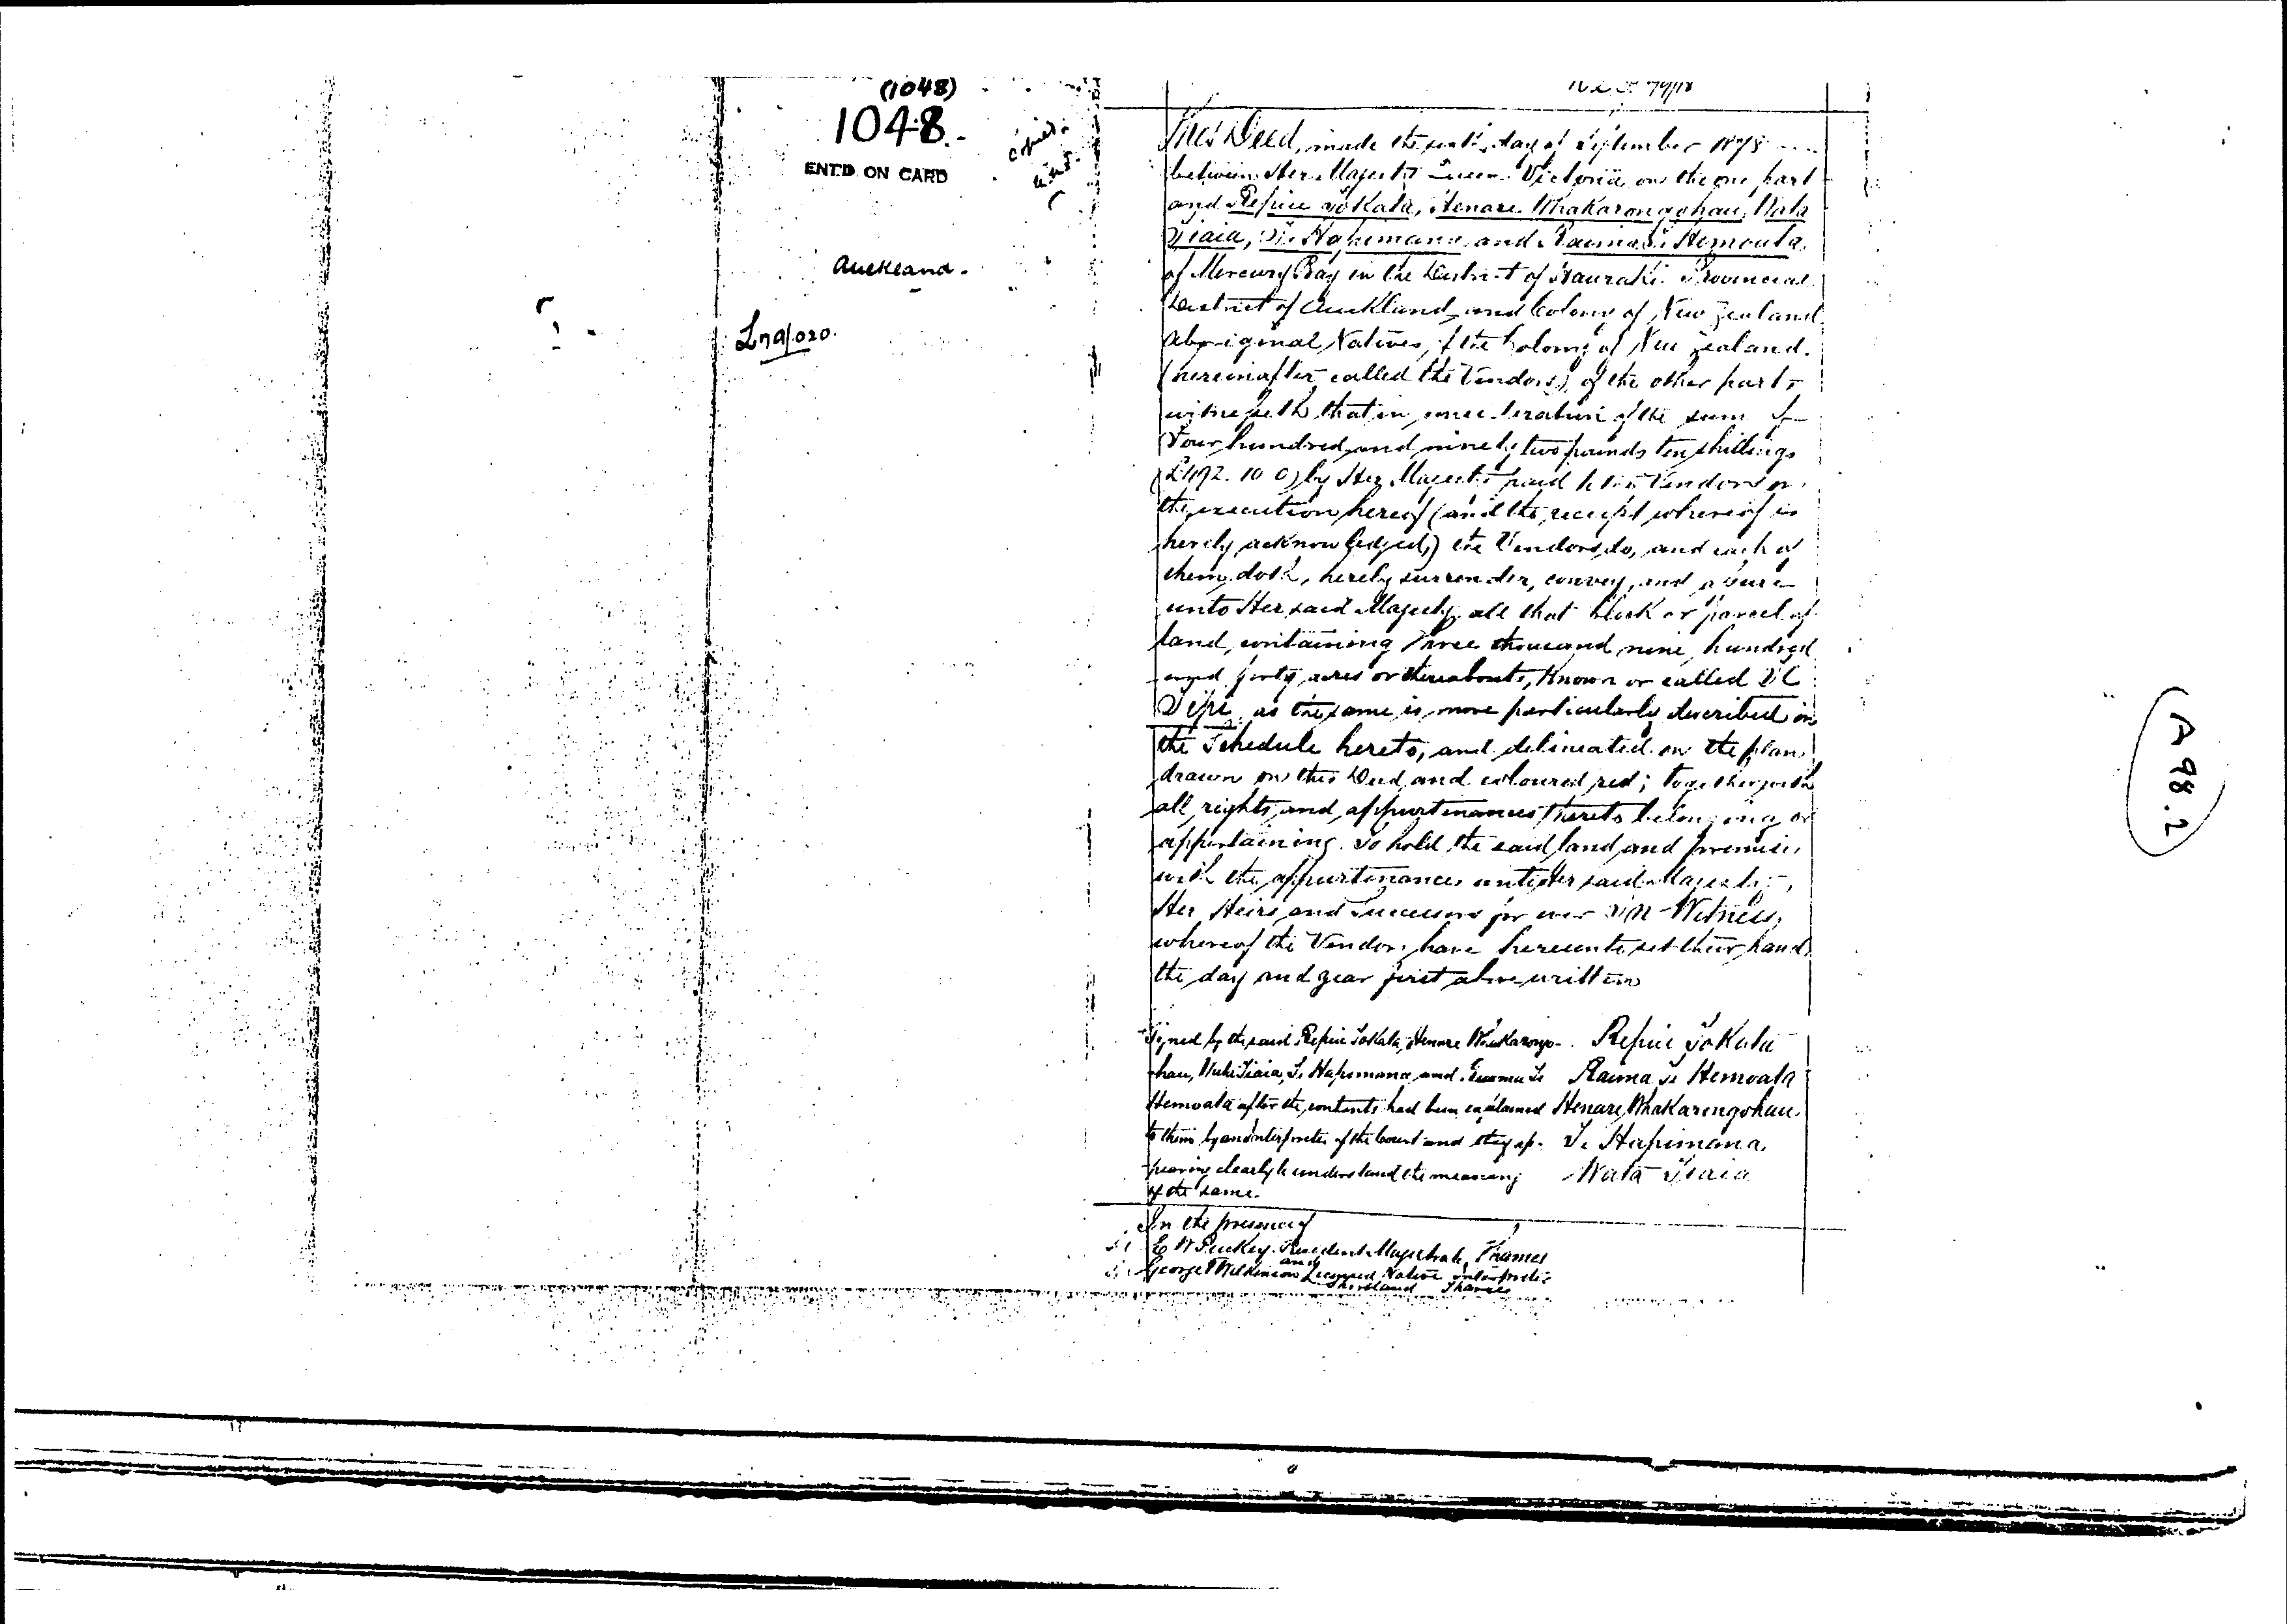 (1048)
1048.
ENT'D. ON CARD
Auckland.
79/18
This Deed, made the day of September 1878
between Her Majesty Queen Victoria on the one part
and Repine Tokata, Henare Whakarongohau, Wata
Tiaia, Te Hapimana and Raima Te Hemoata
of Mercury Bay in the District of Hauraki Provincial
District of Auckland and Colony of New Zealand
aboriginal Natives of the Colony of New Zealand.
(hereinafter called the Vendors) of the other part
witnesseth that in consideration of the sum of
Four hundred and ninety two pounds ten shillings
(£492. 10 0) by Her Majesty paid to the Vendors on
the execution hereof (and the receipt whereof is
hereby acknowledged,) the Vendors do, and each of
them doth, hereby surrender, convey, and assure
unto Her said Majesty all that block or parcel of
land, containing Three thousand nine hundred
and forty acres or thereabouts, known or called Te
Tipi as the same is more particularly described in
the Schedule hereto, and delineated on the plan
drawn on this Deed and coloured red; together with
all rights and appurtenances thereto belonging or
appertaining. To hold the said land and premises
with the appurtenances unto Her said Majesty,
Her Heirs and Successors for ever In Witness
whereof the Vendors have hereunto set their hands
the day and year first above written
Signed by the said Repine Tokata, Henare Whakarongo-
hau, Tiaia, Te Hapimana and Te
Hemoata after the contents had been explained
to them by an interpreter of the Court and they ap-
pearing clearly to understand the meaning
of the same.
Repine Tokata
Raima Te Hemoata
Henare Whakarongohau
Te Hapimana
Wata Tiaia
In the presence of
E W Puckey Resident Magistrate, Thames
and
George T Wilkinson Licensed Native Interpreter
Shortland Thames
A 98.2